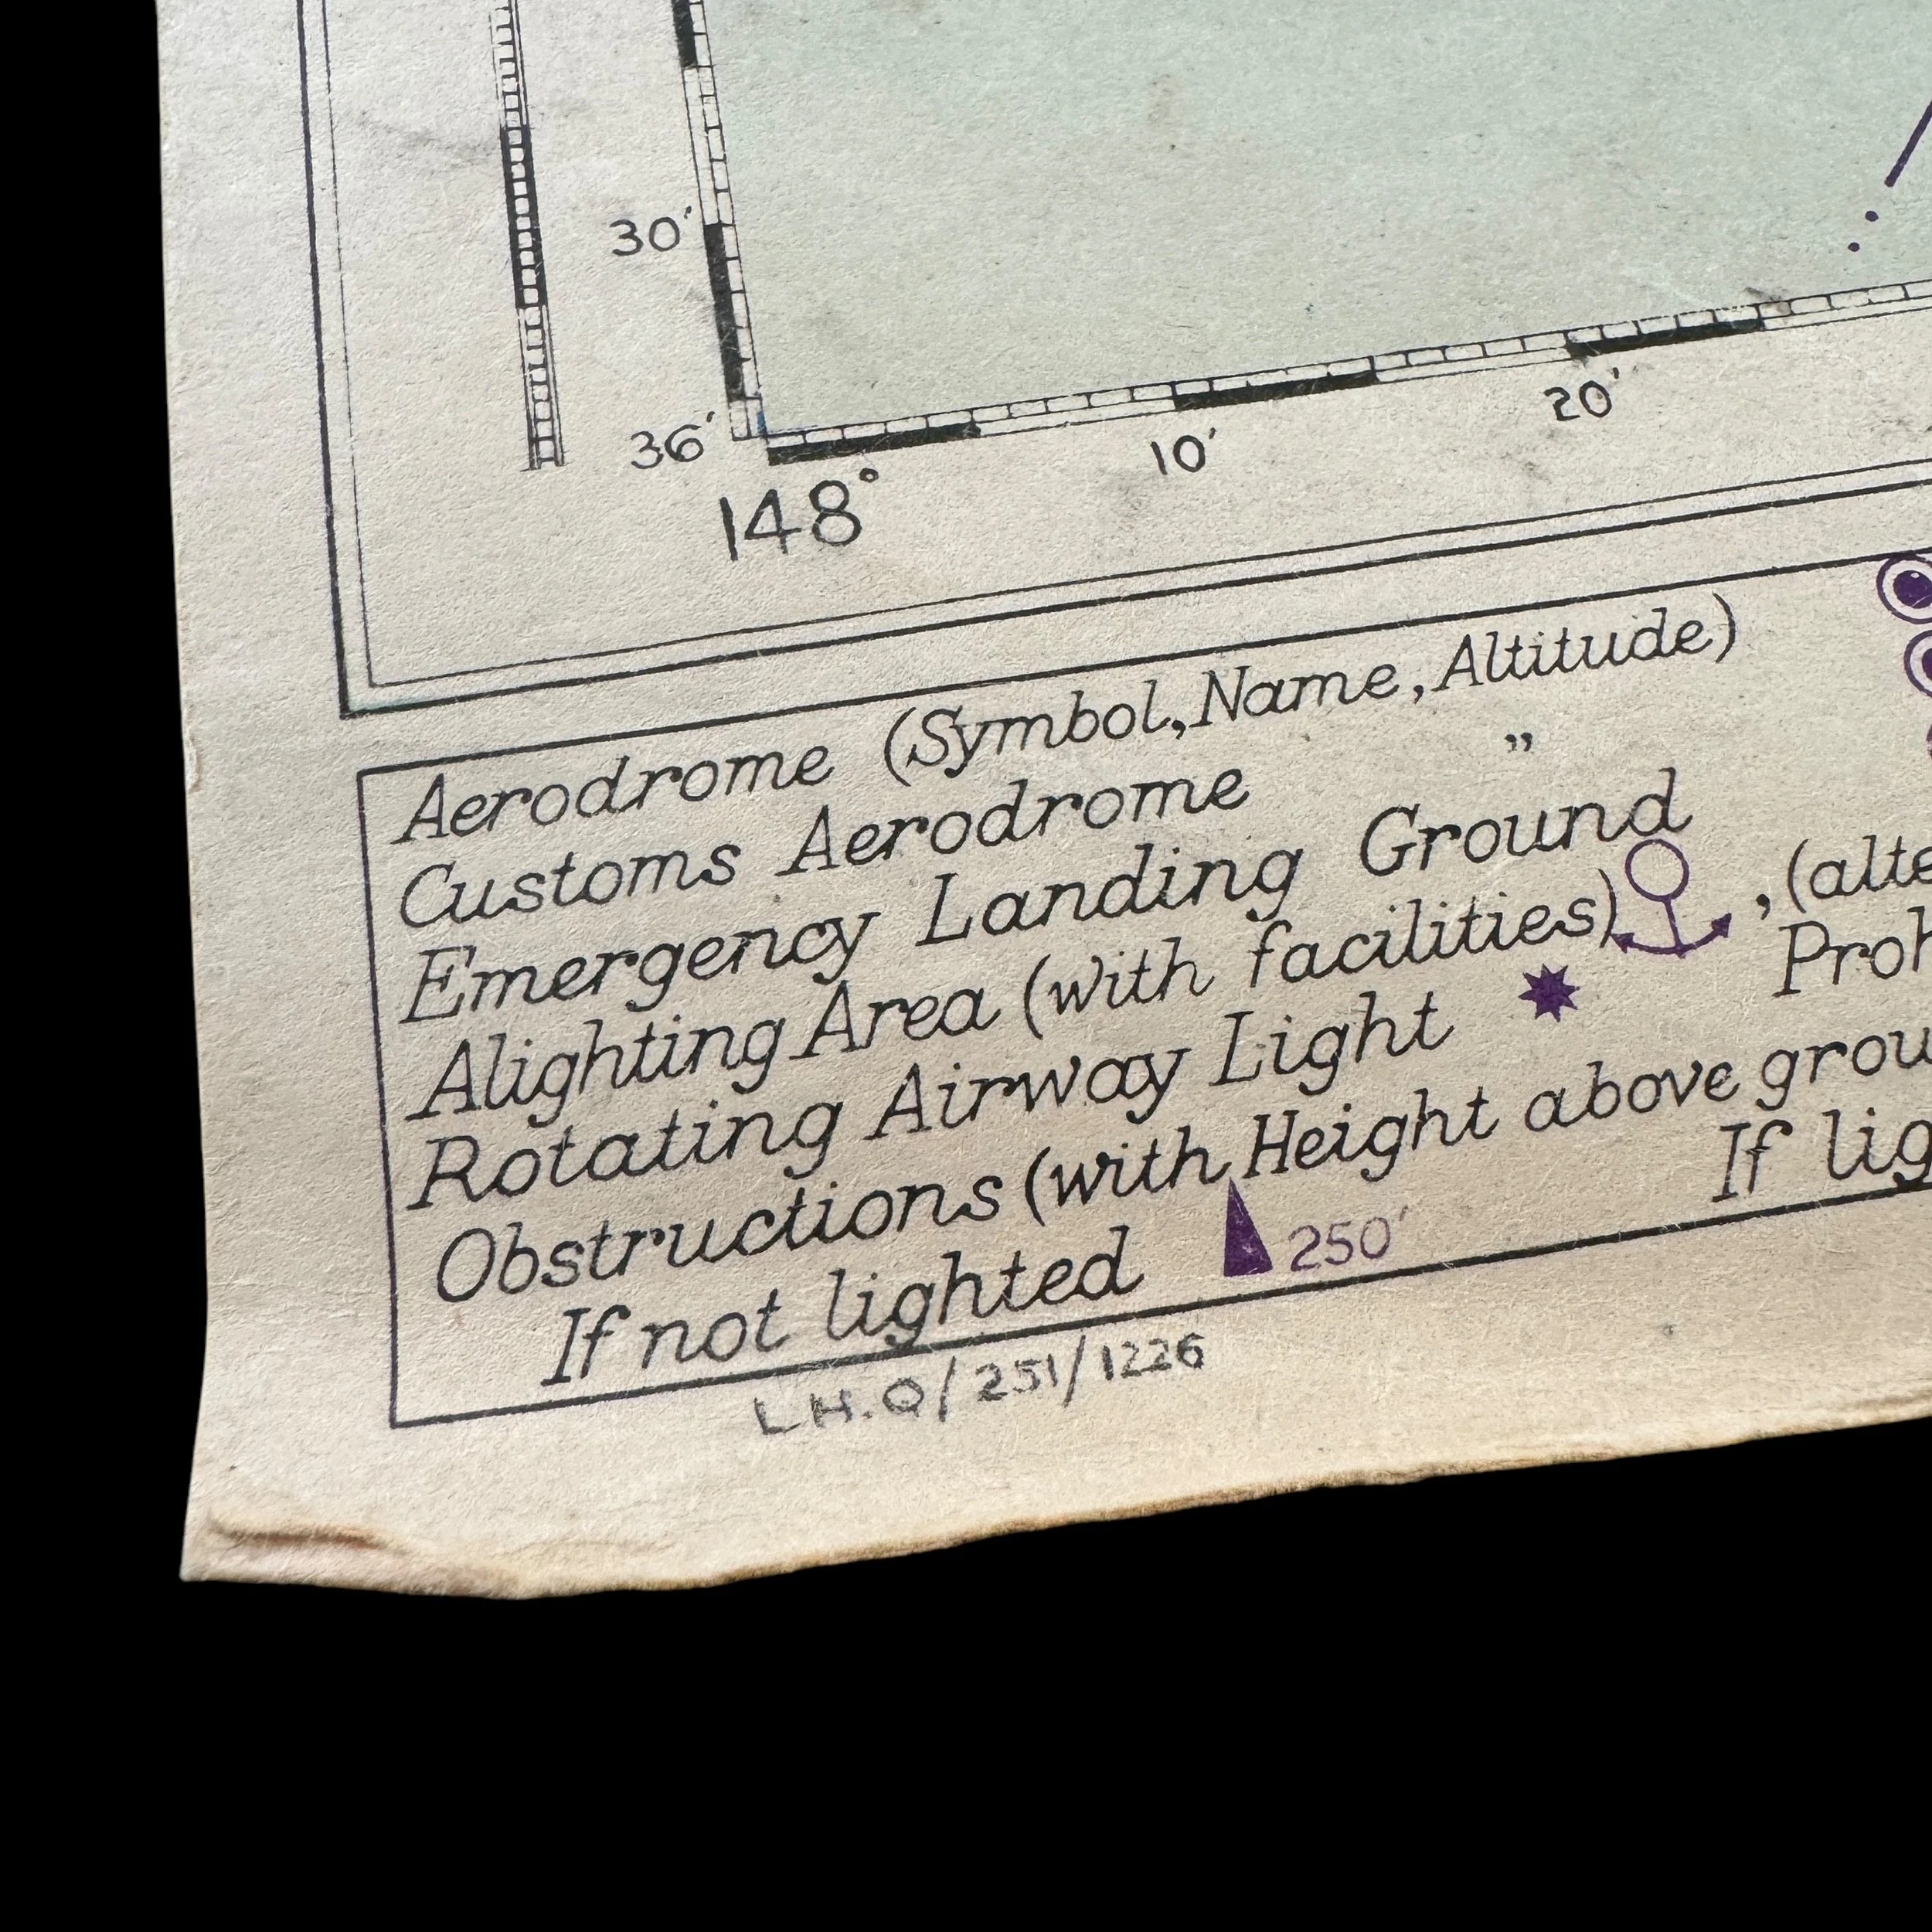 30′
36′
148°
10′
20′
Aerodrome (Symbol, Name, Altitude)
Customs Aerodrome ”
Emergency Landing Ground
Alighting Area (with facilities) , (alte
Rotating Airway Light Proh
Obstructions (with Height above grou
If not lighted 250′ If lig
L.H.Q/251/1226